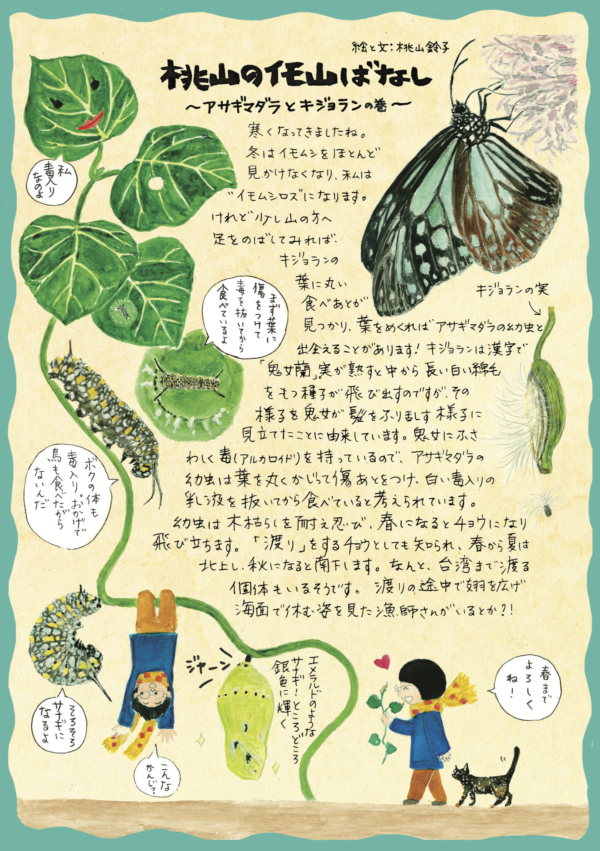 絵と文:桃山鈴子
桃山のイモ山ばなし
〜アサギマダラとキジョランの巻〜
寒くなってきましたね。
冬はイモムシをほとんど
見かけなくなり、私は
"イモムシロス"になります。
けれど少し山の方へ
足をのばしてみれば、
キジョランの
葉に丸い
食べあとが
見つかり、葉をめくれば アサギマダラの幼虫と
出会えることがあります! キジョランは漢字で
「鬼女蘭」、実が熟すと中から長い白い綿毛
をもつ種子が飛び出すのですが、その
様子を鬼女が髪をふりみだす様子に
見立てたことに由来しています。鬼女にふさ
わしく毒(アルカロイド)を持っているので、アサギマダラの
幼虫は葉を丸くかじって傷あとをつけ、白い毒入りの
乳液を抜いてから食べていると考えられています。
幼虫は木枯らしを耐え忍び、春になるとチョウになり
飛び立ちます。「渡り」をするチョウとしても知られ、春から夏は
北上し、秋になると南下します。なんと、台湾まで渡る
個体もいるそうです。 渡りの途中で翅を広げ
海面で休む姿を見た漁師さんがいるとか?!
私
毒入り
なのよ
まず葉に
傷をつけて
毒を抜いてから
食べているよ
キジョランの実
ボクの体も
毒入り。おかげで
鳥も食べたがら
ないんだ
そろそろ
サナギに
なるよ
こんな
かんじ?
ジャーン
エメラルドのような
サナギ!ところどころ
銀色に輝く
春まで
よろしく
ね!